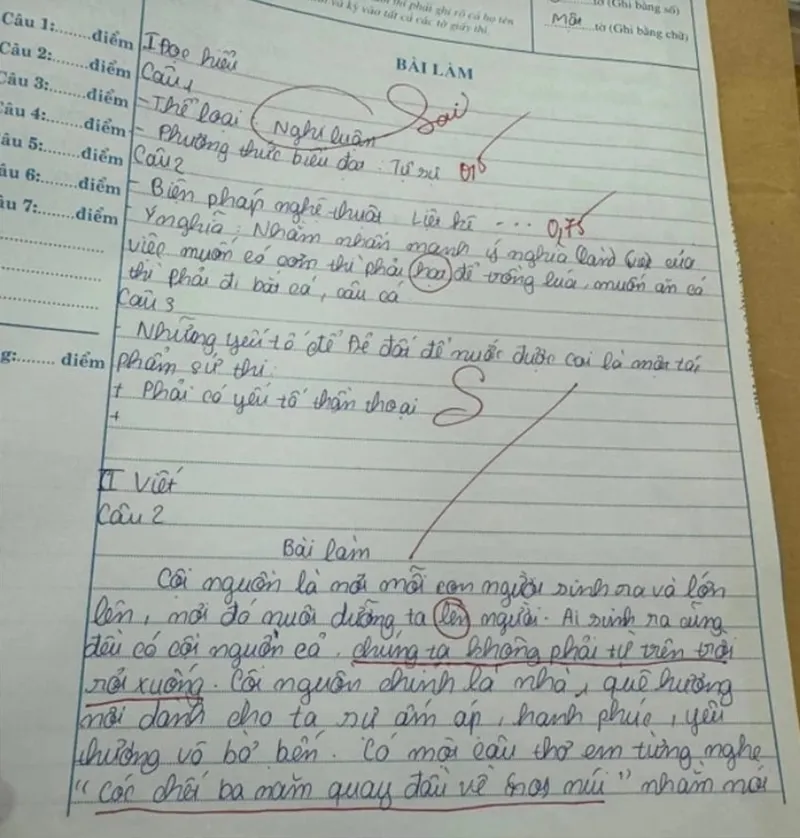 thí phải ghi rõ cả họ tên
và ký vào tất cả các tờ giấy thi.
tờ (Ghi bằng số)
Một tờ (Ghi bằng chữ)
Câu 1:........điểm
Câu 2:........điểm
Câu 3:........điểm
Câu 4:........điểm
âu 5:........điểm
âu 6:........điểm
âu 7:........điểm
g:........ điểm
BÀI LÀM
I Đọc hiểu
Câu 1
- Thể loại: Nghị luận Sai
- Phương thức biểu đạt: Tự sự
Câu 2
- Biện pháp nghệ thuật Liệt kê ... 0,75
- Ý nghĩa: Nhằm nhấn mạnh ý nghĩa của
việc muốn có cơm thì phải để trồng lúa, muốn ăn cá
thì phải đi bắt cá, câu cá
Câu 3
- Những yếu tố để Đẻ đất đẻ nước được coi là một tác
phẩm sử thi:
+ Phải có yếu tố thần thoại S
+
II Viết
Câu 2
Bài làm
Cội nguồn là nơi mỗi con người sinh ra và lớn
lên, nơi đó nuôi dưỡng ta lên người. Ai sinh ra cũng
đều có cội nguồn cả, chúng ta không phải từ trên trời
rơi xuống. Cội nguồn chính là nhà, quê hương
nơi danh cho ta sự ấm áp, hạnh phúc, yêu
thương vô bờ bến. Có một câu thơ em từng nghe
"Cóc chết ba năm quay đầu về núi" nhằm nói